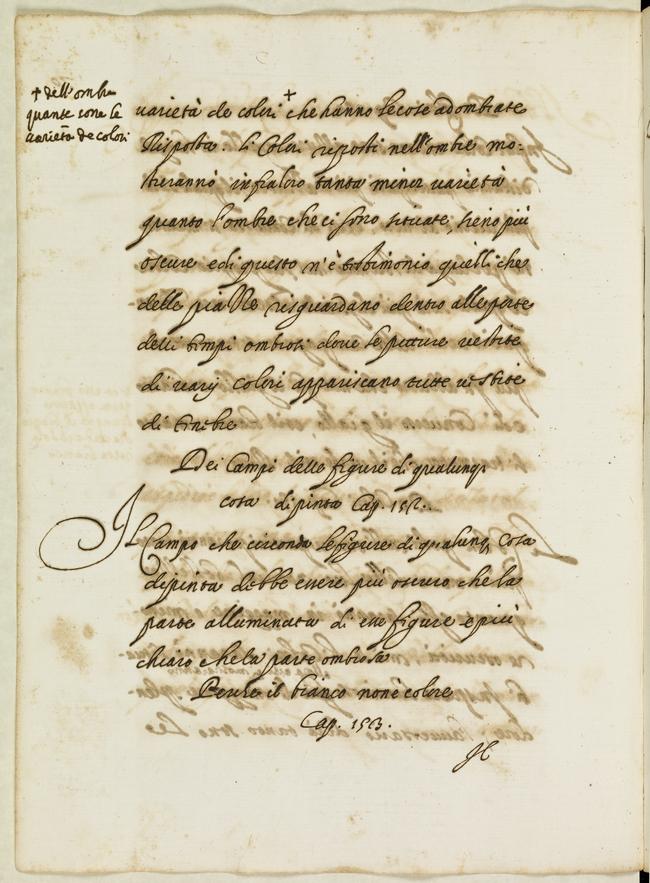 + dell'ombre
quante sono le
varietà de colori
varietà de colori + che hanno le cose adombrate
Risposta. Li Colori riposti nell'ombre mo-
streranno infraloro tanta minor varietà
quanto l'ombre che ci sono situate, sieno più
oscure e di questo n'è testimonio quelli che
delle piazze risguardano dentro alle porte
delli tempi ombrosi dove le pitture vestite
di varij colori appariscano tutte vestite
di tenebre
Dei Campi delle figure di qualunq
cosa dipinta Cap. 152.
Il Campo che circonda le figure di qualunq cosa
dipinta debbe essere più oscuro che la
parte alluminata di esse figure e più
chiaro che la parte ombrosa
Perche il bianco non è colore
Cap. 153.
Il